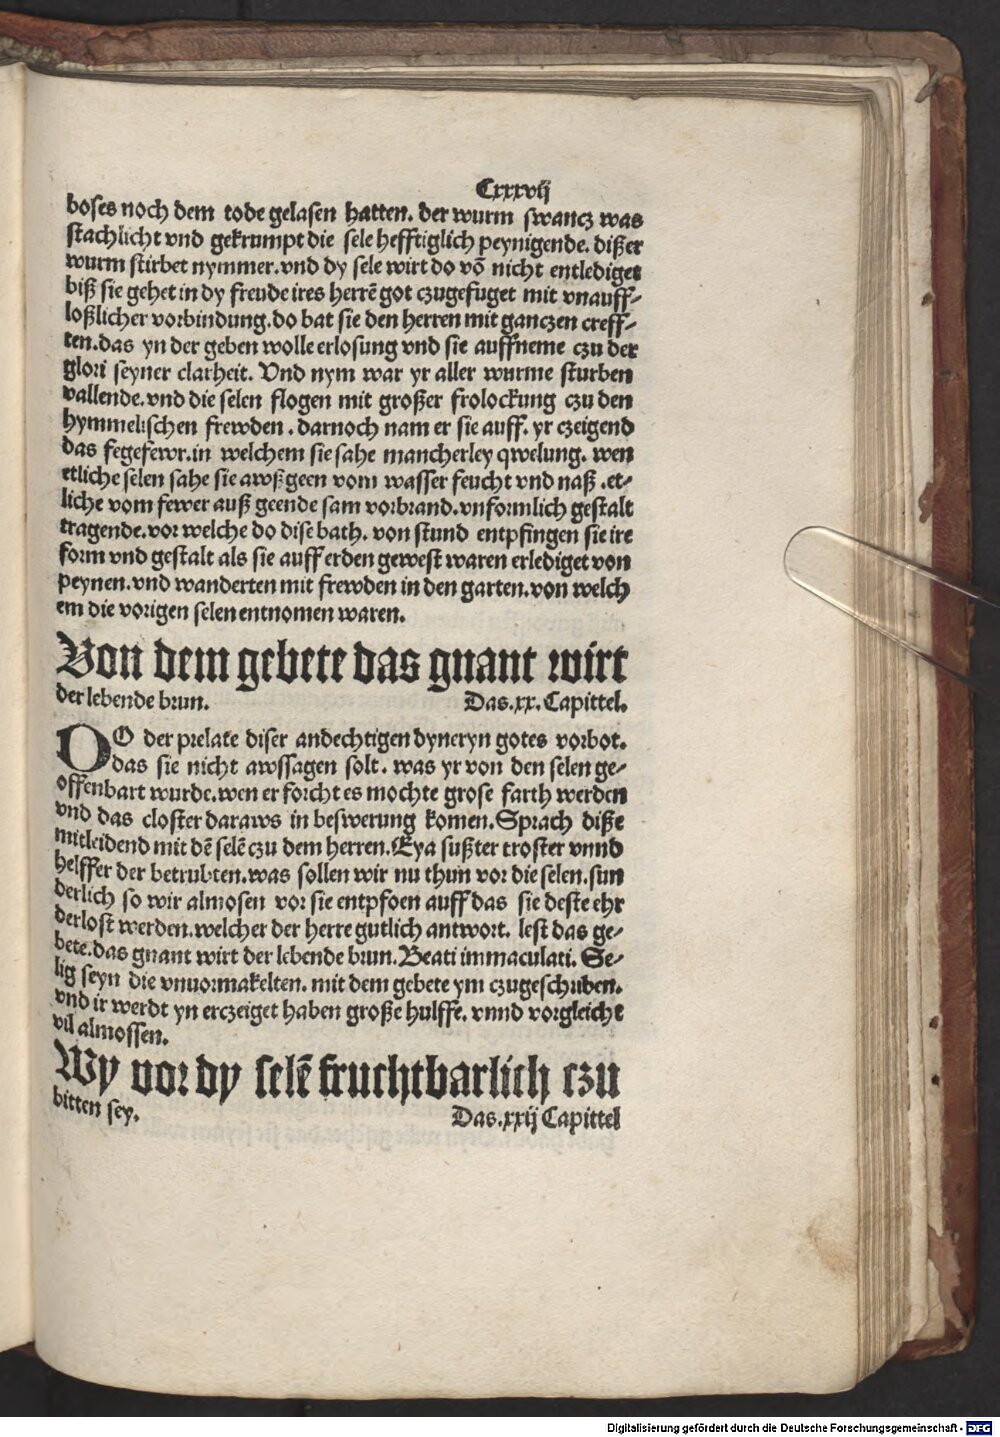 Cxxxvij
boses noch dem tode gelasen hatten. der wurm swancz was
stachlicht vnd gekrumpt die sele hefftiglich peynigende. dißer
wurm stirbet nymmer. vnd dy sele wirt do võ nicht entlediget
biß sie gehet in dy freude ires herrẽ got czugefuget mit vnauff-
loßlicher vorbindung. do bat sie den herren mit ganczen creff-
ten. das yn der geben wolle erlosung vnd sie auffneme czu der
glori seyner clarheit. Vnd nym war yr aller wurme sturben
vallende. vnd die selen flogen mit großer frolockung czu den
hymmelischen frewden. darnoch nam er sie auff. yr czeigend
das fegefewr. in welchem sie sahe mancherley qwelung. wen
etliche selen sahe sie awßgeen vom wasser feucht vnd naß. et-
liche vom fewer auß geende sam vorbrand. vnformlich gestalt
tragende. vor welche do dise bath. von stund entpfingen sie ire
form vnd gestalt als sie auff erden gewest waren erlediget von
peynen. vnd wanderten mit frewden in den garten. von welch
em die vorigen selen entnomen waren.
Von dem gebete das gnant wirt
der lebende brun. Das. xx. Capittel.
DO der prelate diser andechtigen dyneryn gotes vorbot.
das sie nicht awssagen solt. was yr von den selen ge-
offenbart wurde. wen er forcht es mochte grose farth werden
vnd das closter daraws in beswerung komen. Sprach diße
mitleidend mit dẽ selẽ czu dem herren. Eya sußter troster vnnd
helffer der betrubten. was sollen wir nu thun vor die selen. sun
derlich so wir almosen vor sie entpfoen auff das sie deste ehr
derlost werden. welcher der herre gutlich antwort. lest das ge-
bete. das gnant wirt der lebende brun. Beati immaculati. Se-
lig seyn die vnuormakelten. mit dem gebete ym czugeschriben.
vnd ir werdt yn erczeiget haben große hulffe. vnnd vorgleicht
vil almossen.
Wy vor dy selẽ fruchtbarlich czu
bitten sey. Das. xxij Capittel
Digitalisierung gefördert durch die Deutsche Forschungsgemeinschaft - DFG